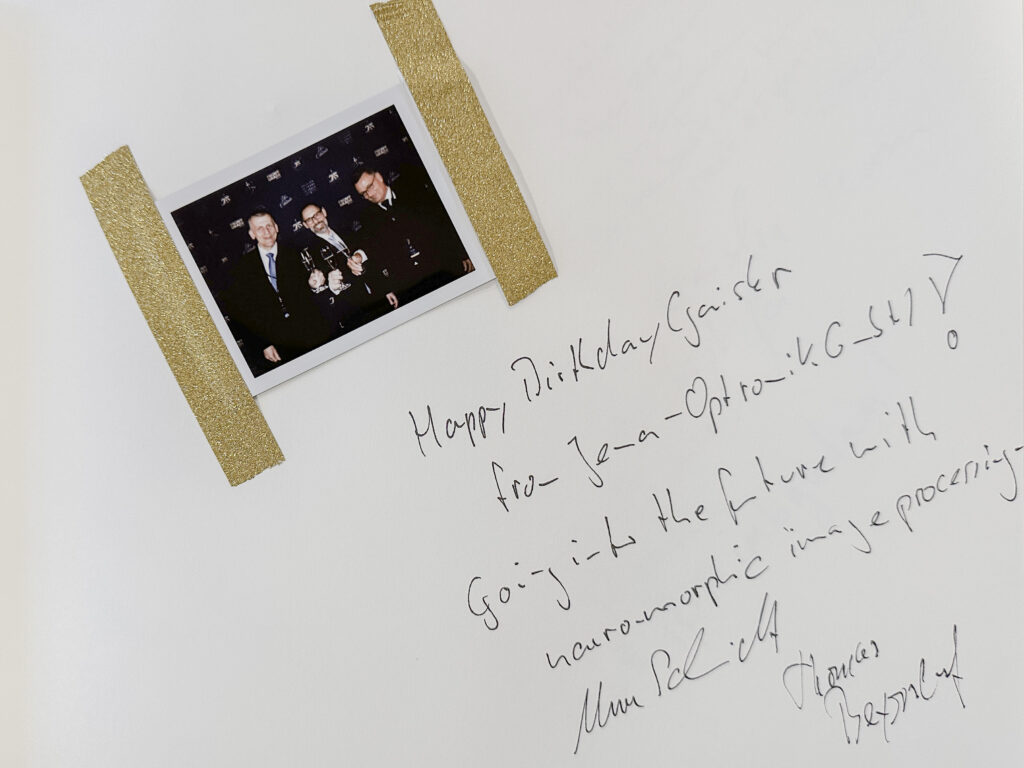 Happy Birthday Gaisler
from Jena-Optronik GmbH!
Going into the future with
neuromorphic image processing.
Schmidt
Thomas